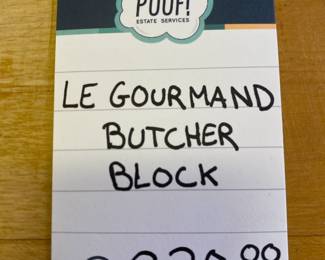 POOF!
ESTATE SERVICES
LE GOURMAND
BUTCHER
BLOCK